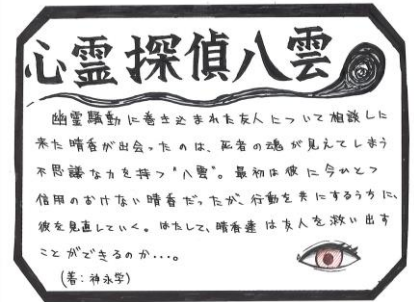 心霊探偵八雲
幽霊騒動に巻き込まれた友人について相談しに
来た晴香が出会ったのは、死者の魂が見えてしまう
不思議な力を持つ"八雲"。最初は彼に今ひとつ
信用のおけない晴香だったが、行動を共にするうちに、
彼を見直していく。はたして、晴香達は友人を救い出す
ことができるのか…。
(著:神永学)